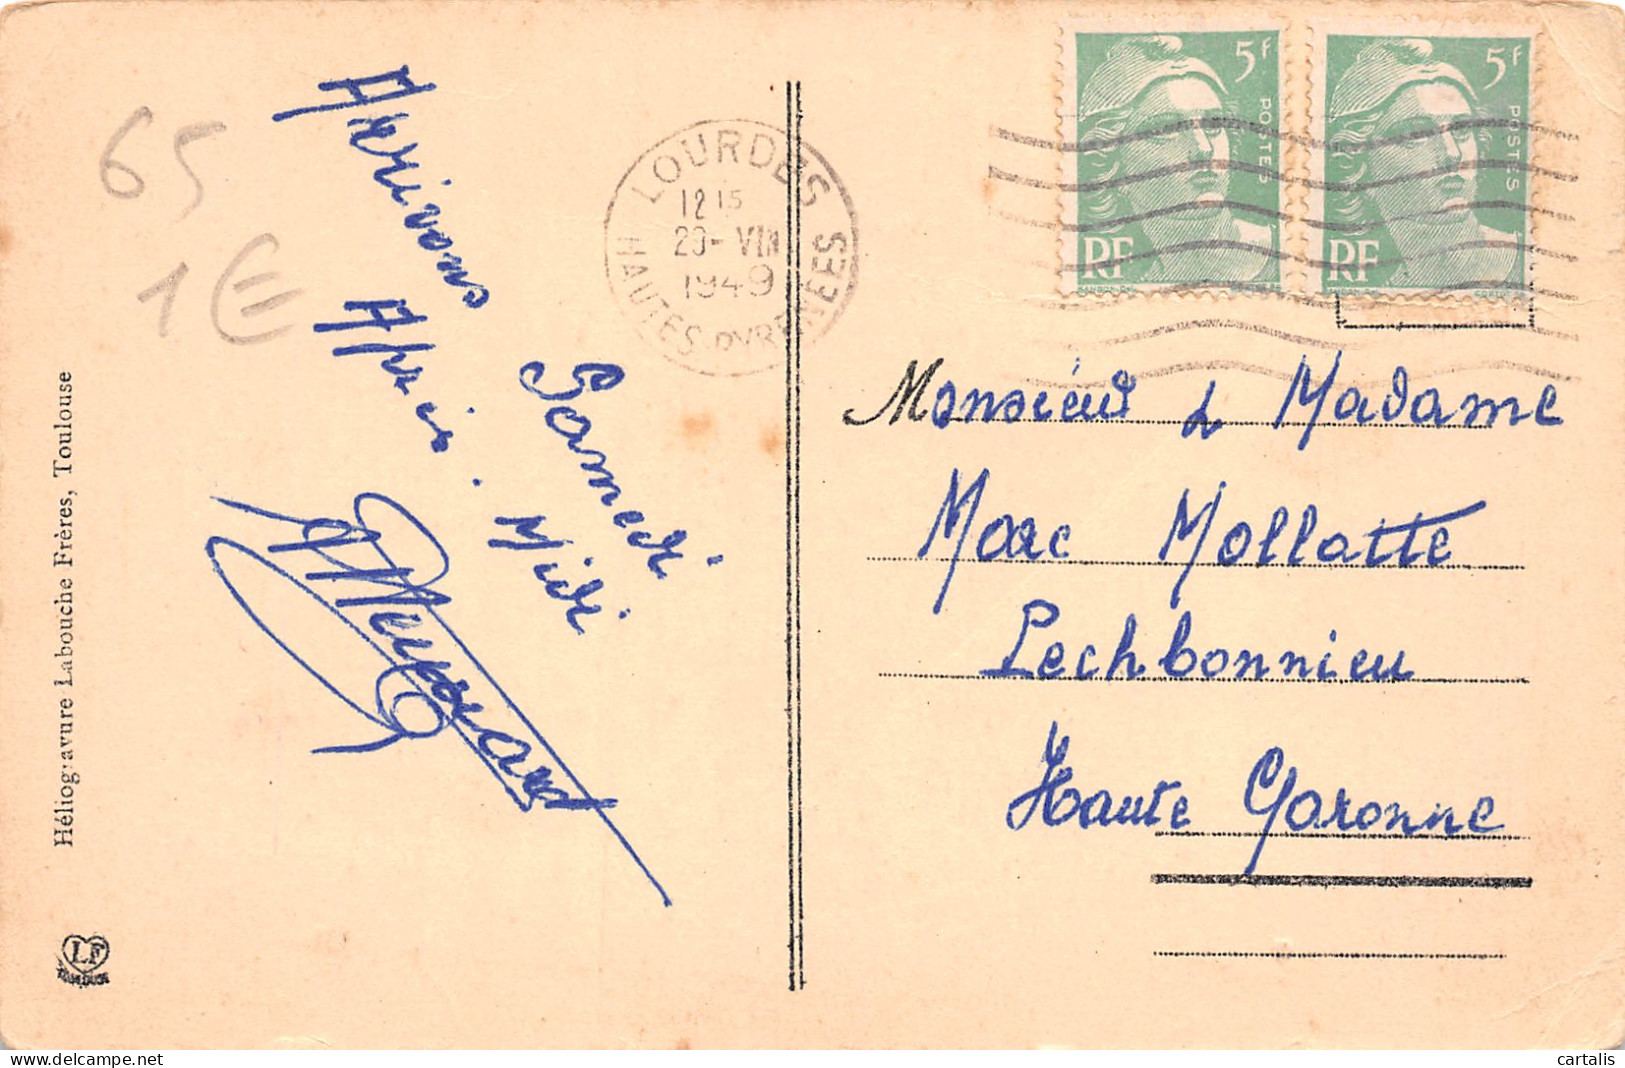 65
1 €
Arrivons
Samedi
Après. Midi
LOURDES
12 15
29-VIII
1949
HAUTES PYRENEES
5F
POSTES
RF
5F
POSTES
RF
Monsieur & Madame
Marc Mollatte
Pechbonnieu
Haute Garonne
Héliogravure Labouche Frères, Toulouse
LF
cartalis